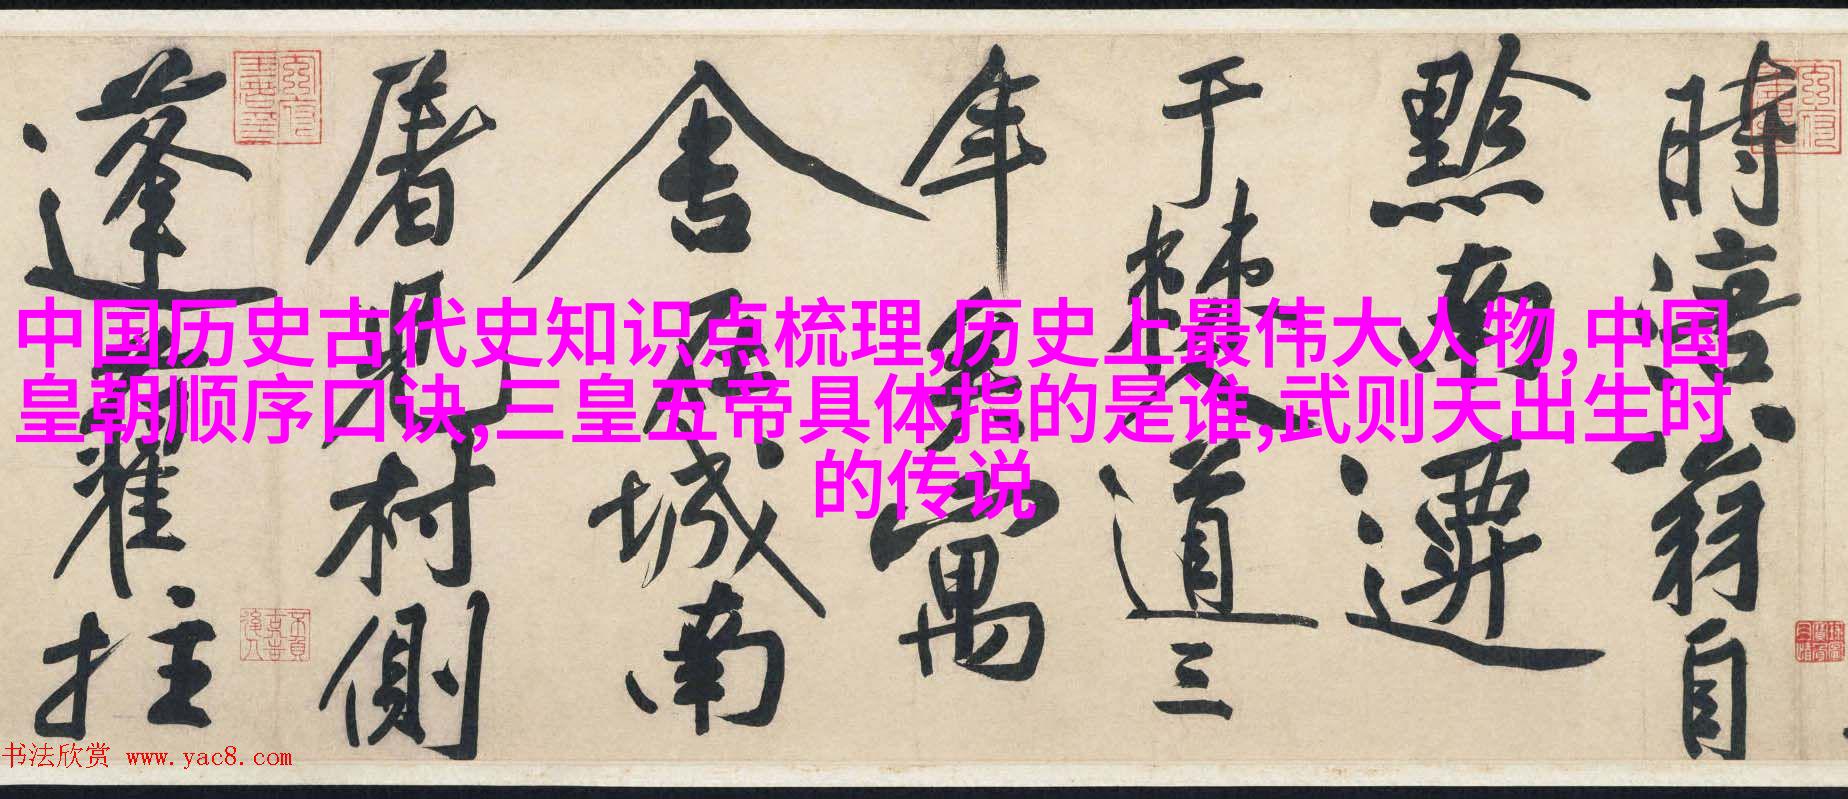 中国历史古代史知识点梳理,历史上最伟大人物,中国
皇朝顺序口诀,三皇五帝具体指的是谁,武则天出生时
的传说
時涪翁自
黔南遷
于僰道三
年矣寓
舍在城南
屠兒村側
蓬藋拄
书法欣赏 www.yac8.com